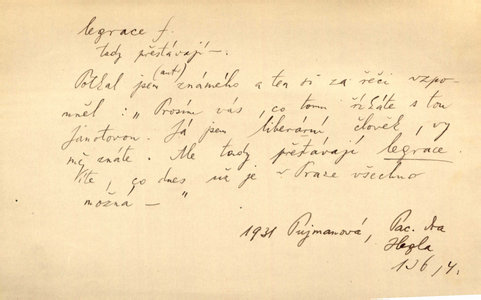 legrace f.
tady přestávají –.
(aut)
Potkal jsem známého a ten si za řeči vzpo-
mněl: „Prosím vás, co tomu říkáte s tou
Janotovou. Já jsem liberární člověk, vy
mě znáte. Ale tady přestávají legrace.
Víte, co dnes už je v Praze všechno
možná – "
1931 Pujmanová, Pac. dra
Hegla
136, 4.